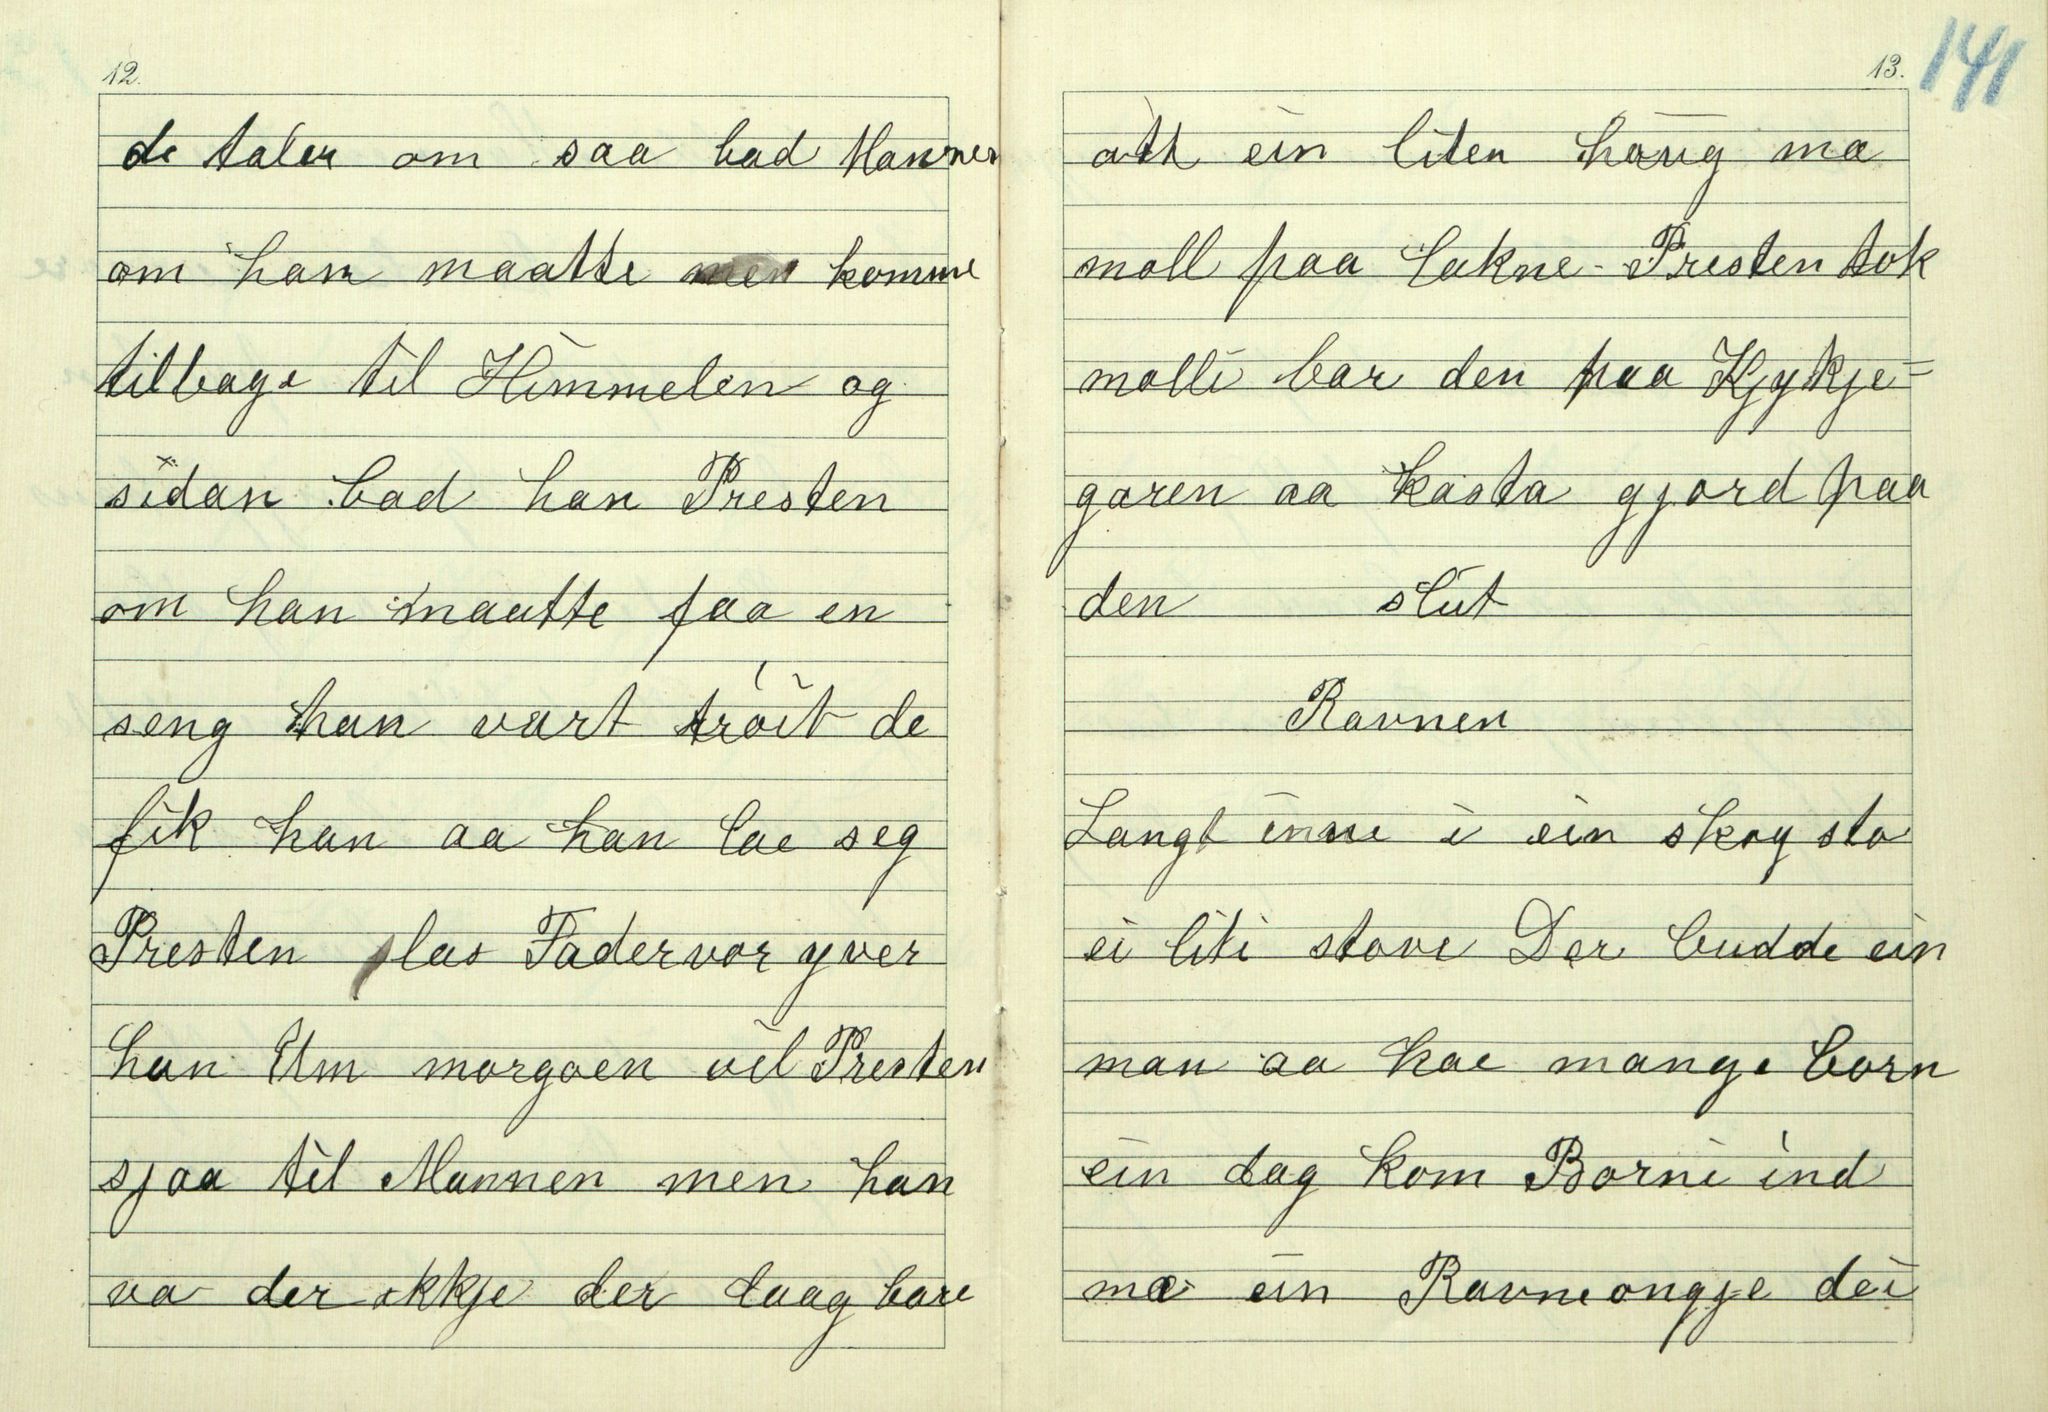 12.
de taler om saa bad Mannen
om han maatte men komme
tilbage til Himmelen og
sidan bad han Presten
om han maatte faa en
seng han vart tröit de
fik han aa han lae seg
Presten las Fadervor yver
han Um morgoen vil Presten
sjaa til Mannen men han
va der ikkje der laag bare
13.
141
att ein liten haug ma
moll paa Lakne - Presten tok
molli bar den paa Kjykje=
garen aa kasta gjord paa
den slut
Ravnen
Langt inne i ein skog sto
ei liti stove Der budde ein
man aa hae mange born
ein dag kom Borni ind
mæ ein Ravneongje dei